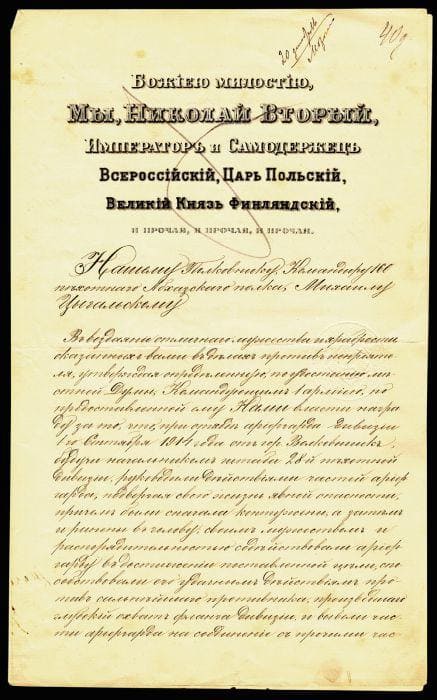 409
БОЖІЕЮ МИЛОСТІЮ,
МЫ, НИКОЛАЙ ВТОРЫЙ,
ИМПЕРАТОРЪ И САМОДЕРЖЕЦЪ
ВСЕРОССІЙСКІЙ, ЦАРЬ ПОЛЬСКІЙ,
ВЕЛИКІЙ КНЯЗЬ ФИНЛЯНДСКІЙ,
И ПРОЧАЯ, И ПРОЧАЯ, И ПРОЧАЯ.
Нашему Полковнику, Командиру
пѣхотнаго полка, Михаилу
Цыгальскому
Въ воздаяніе отличнаго мужества и храбрости
оказанныхъ вами въ дѣлахъ противъ непріяте-
ля, утверждая опредѣленную, по удостоенію мѣ-
стной Думы, Командующимъ 1 арміею, по
предоставленной ему Нами власти награ-
ду за то, что, при отходѣ аріергарда дивизіи
1го Сентября 1914 года отъ гор.
будучи начальникомъ штаба 28-й пѣхотной
дивизіи, руководили дѣйствіями частей аріер-
гарда, подвергая свою жизнь явной опасности,
причемъ были сначала контужены, а затѣмъ
и ранены въ голову, своимъ мужествомъ и
распорядительностью содѣйствовали аріер-
гарду въ достиженіи поставленной цѣли, спо-
собствовали его удачнымъ дѣйствіямъ про-
тивъ сильнѣйшаго противника,
глубокій охватъ фланга дивизіи, и вывели час-
ти аріергарда на соединеніе съ прочими час-